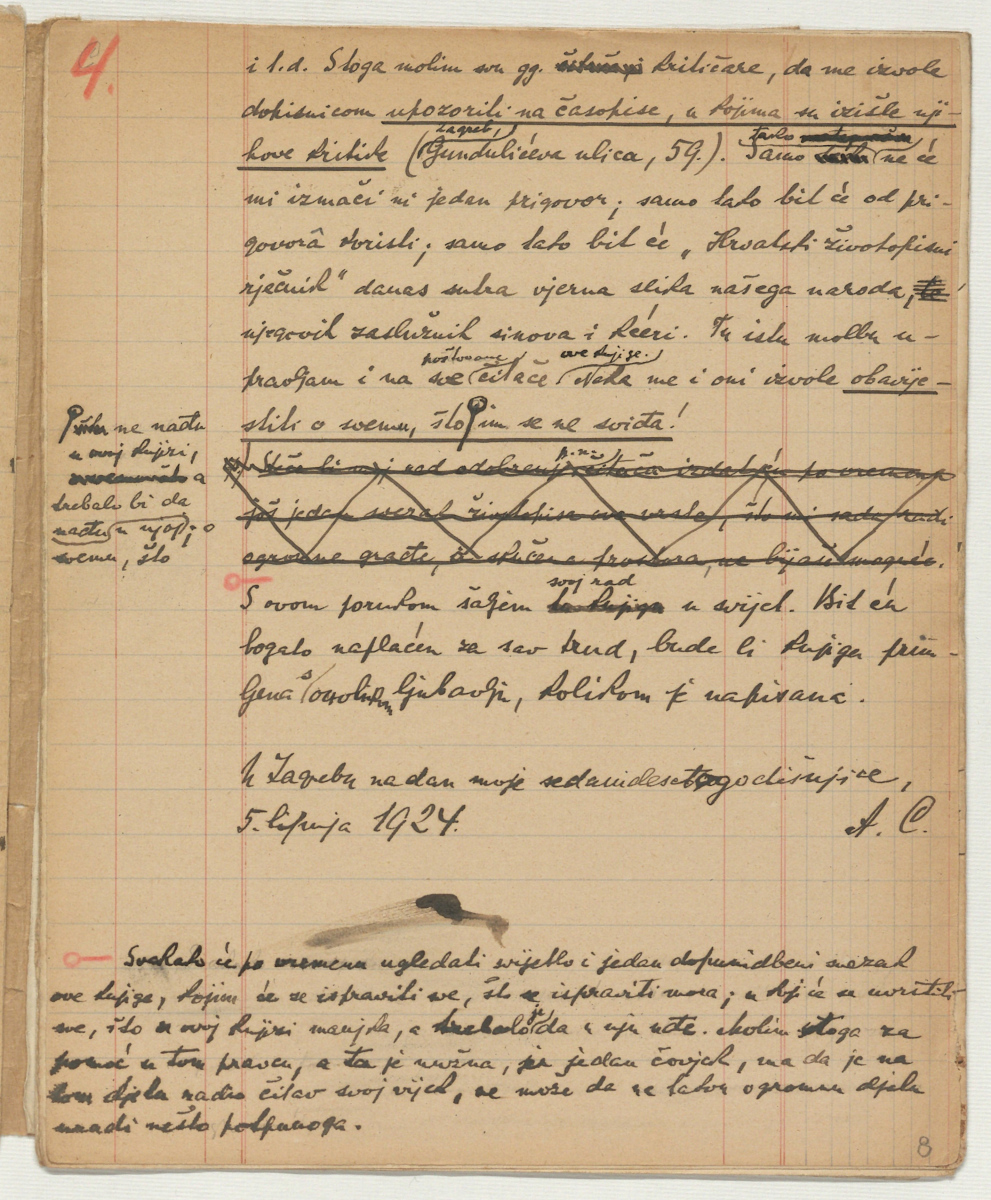 4.
i t.d. Stoga molim svu gg. kritičare, da me izvole
dopisnicom upozoriti na časopise, u kojima su izišle nji-
hove kritike (Zagreb, Gundulićeva ulica, 59.). Samo tako ne će
mi izmaći ni jedan prigovor; samo tako bit će od pri-
govorâ koristi; samo tako bit će „Hrvatski životopisni
rječnik" danas sutra vjerna slika našega naroda,
njegovih zaslužnih sinova i kćeri. Tu istu molbu u-
pravljam i na sve poštovane čitače ove knjige. Neka me i oni izvole obavije-
stiti o svemu, što im se ne sviđa!
ne nađu
u ovoj knjizi,
a
trebalo bi da
nađu u njoj; o
svemu, što
ovaj rad odobrenje p. n. čitača izdat ću po vremenu
još jedan svezak životopisa ove vrste, što mi sada radi
ogromne građe, a skučena prostora, ne bijaše moguće.
S ovom porukom šaljem svoj rad u svijet. Bit ću
bogato naplaćen za sav trud, bude li knjiga prim-
ljena s onolikom ljubavlju, kolikom je napisana.
U Zagrebu na dan moje sedamdesetogodišnjice,
5. lipnja 1924. A. C.
Svakako će po vremenu ugledati svijetlo i jedan dopunidbeni svezak
ove knjige, kojim će se ispraviti sve, što se ispraviti mora; u koji će se uvrstiti
sve, što u ovoj knjizi manjka, a trebalo je da u nju uđe. Molim stoga za
pomoć u tom pravcu, a ta je nužna, jer jedan čovjek, ma da je na
tom djelu radio čitav svoj vijek, ne može da na takvu ogromnu djelu
uradi nešto potpunoga.
8